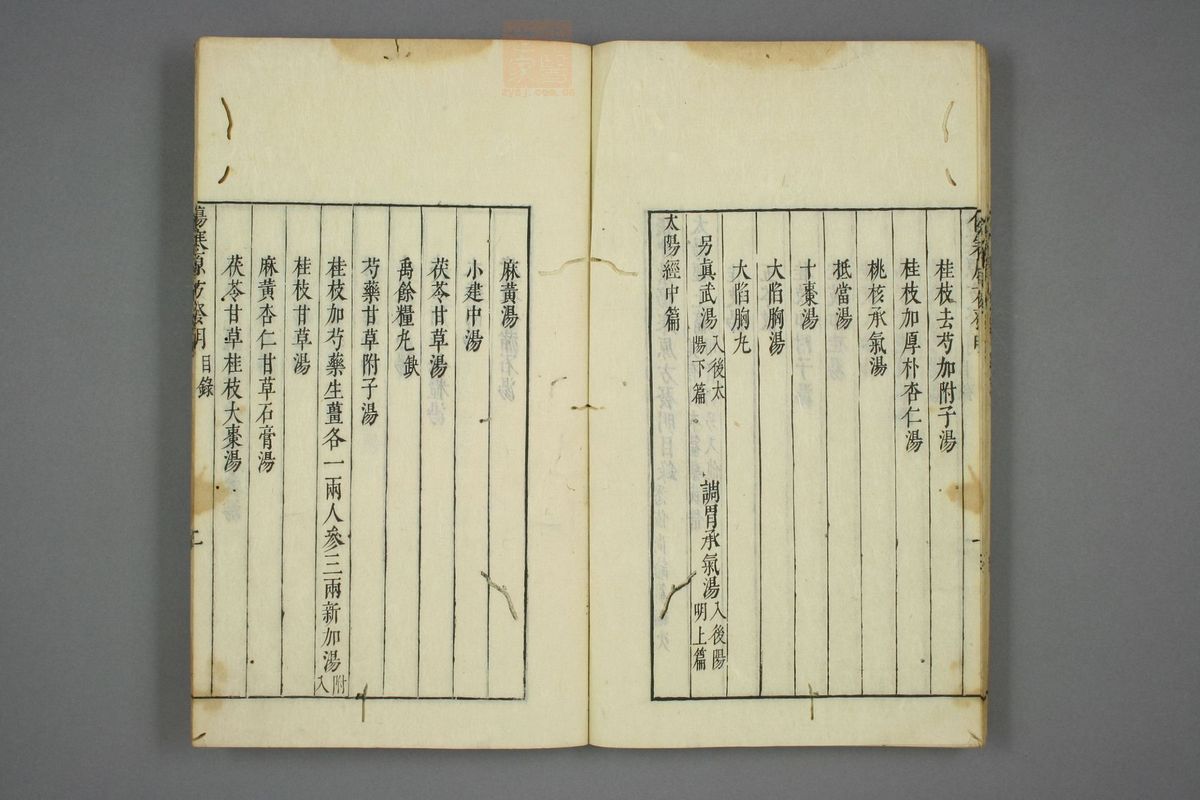 桂枝去芍加附子湯
桂枝加厚朴杏仁湯
桃核承氣湯
抵當湯
十棗湯
大陷胸湯
大陷胸丸
另眞武湯入後太陽下篇。調胃承氣湯入後陽明上篇
太陽經中篇
麻黃湯
小建中湯
茯苓甘草湯
禹餘糧丸缺
芍藥甘草附子湯
桂枝加芍藥生薑各一兩人參三兩新加湯附入
桂枝甘草湯
麻黃杏仁甘草石膏湯
茯苓甘草桂枝大棗湯
傷寒原方發明 目錄 二
zysj.com.cn